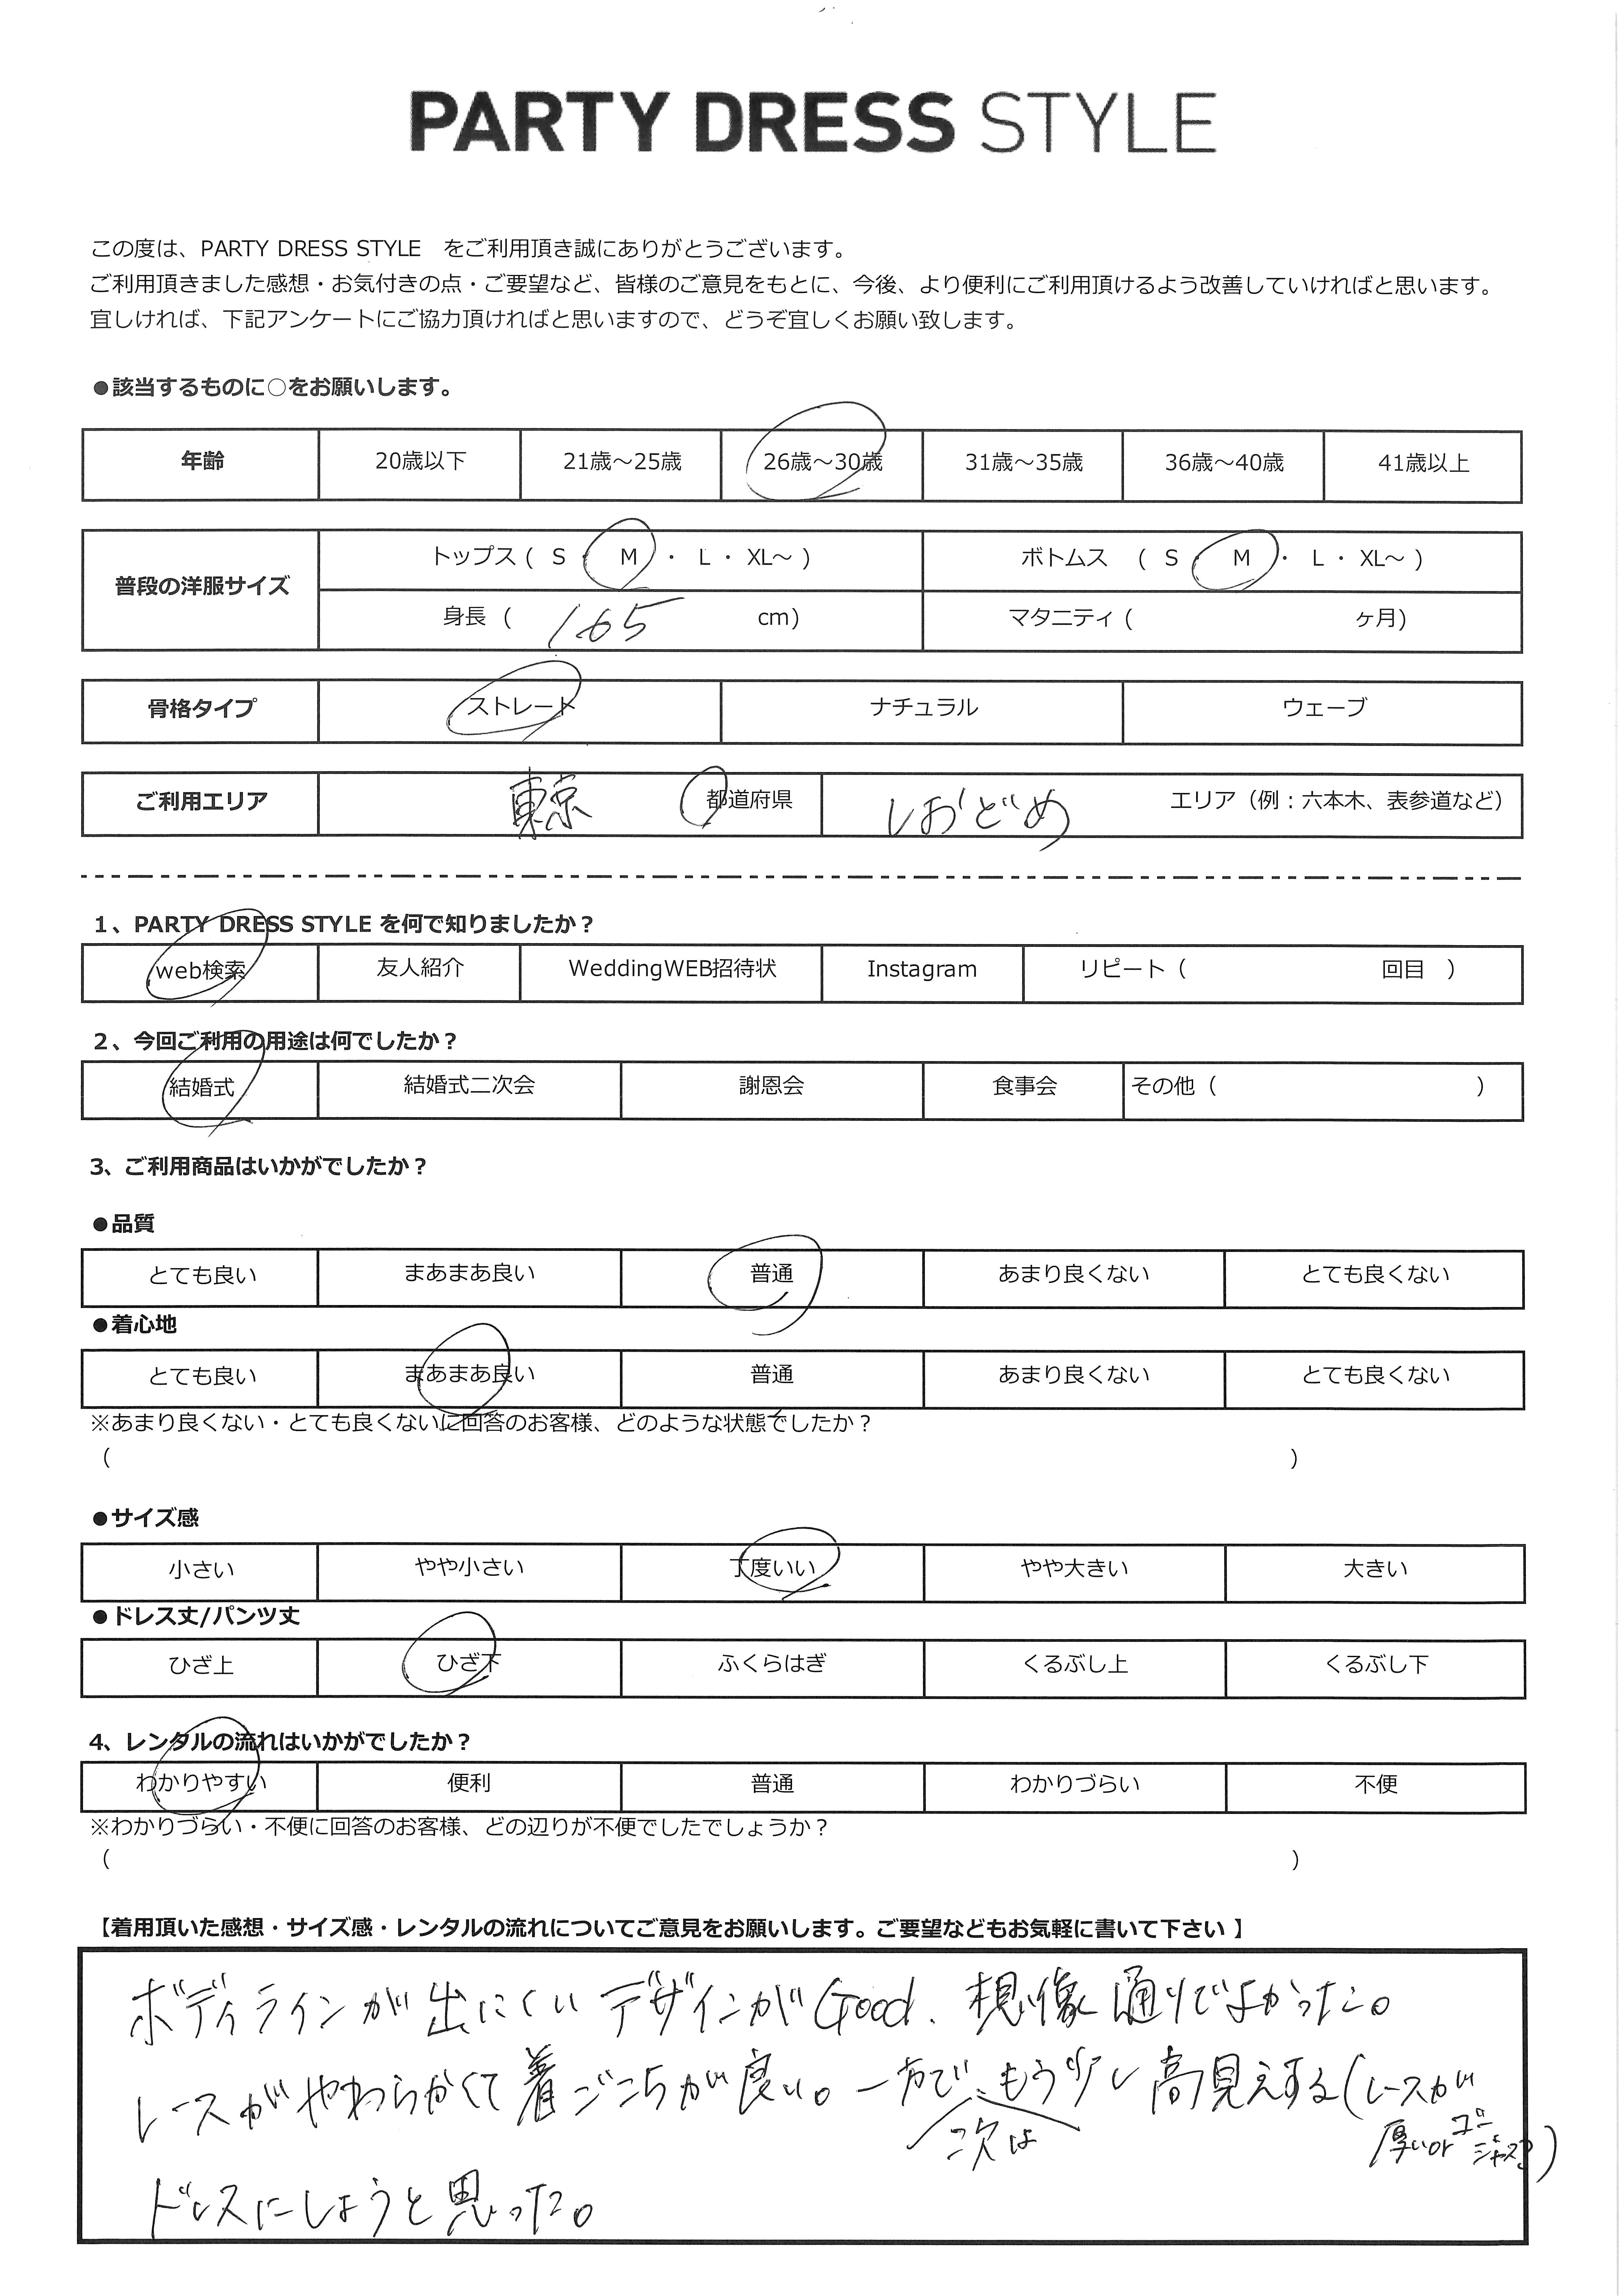 PARTY DRESS STYLE
この度は、PARTY DRESS STYLE をご利用頂き誠にありがとうございます。
ご利用頂きました感想・お気付きの点・ご要望など、皆様のご意見をもとに、今後、より便利にご利用頂けるよう改善していければと思います。
宜しければ、下記アンケートにご協力頂ければと思いますので、どうぞ宜しくお願い致します。
●該当するものに○をお願いします。
年齢 20歳以下 21歳～25歳 26歳～30歳 31歳～35歳 36歳～40歳 41歳以上
普段の洋服サイズ トップス ( S ・ M ・ L ・ XL～ ) ボトムス ( S ・ M ・ L ・ XL～ )
身長 ( 165 cm) マタニティ ( ヶ月)
骨格タイプ ストレート ナチュラル ウェーブ
ご利用エリア 東京 都道府県 しおどめ エリア（例：六本木、表参道など）
1、PARTY DRESS STYLE を何で知りましたか？
web検索 友人紹介 WeddingWEB招待状 Instagram リピート（ 回目 ）
2、今回ご利用の用途は何でしたか？
結婚式 結婚式二次会 謝恩会 食事会 その他（ ）
3、ご利用商品はいかがでしたか？
●品質
とても良い まあまあ良い 普通 あまり良くない とても良くない
●着心地
とても良い まあまあ良い 普通 あまり良くない とても良くない
※あまり良くない・とても良くないに回答のお客様、どのような状態でしたか？
（ ）
●サイズ感
小さい やや小さい 丁度いい やや大きい 大きい
●ドレス丈/パンツ丈
ひざ上 ひざ下 ふくらはぎ くるぶし上 くるぶし下
4、レンタルの流れはいかがでしたか？
わかりやすい 便利 普通 わかりづらい 不便
※わかりづらい・不便に回答のお客様、どの辺りが不便でしたでしょうか？
（ ）
【着用頂いた感想・サイズ感・レンタルの流れについてご意見をお願いします。ご要望などもお気軽に書いて下さい 】
ボディラインが出にくいデザインがGood、想像通りでよかった。
レースがやわらかくて着ごこちが良い。一方で、もう少し高見えする(レースが
次は
厚いorゴージャス？)
ドレスにしようと思った。